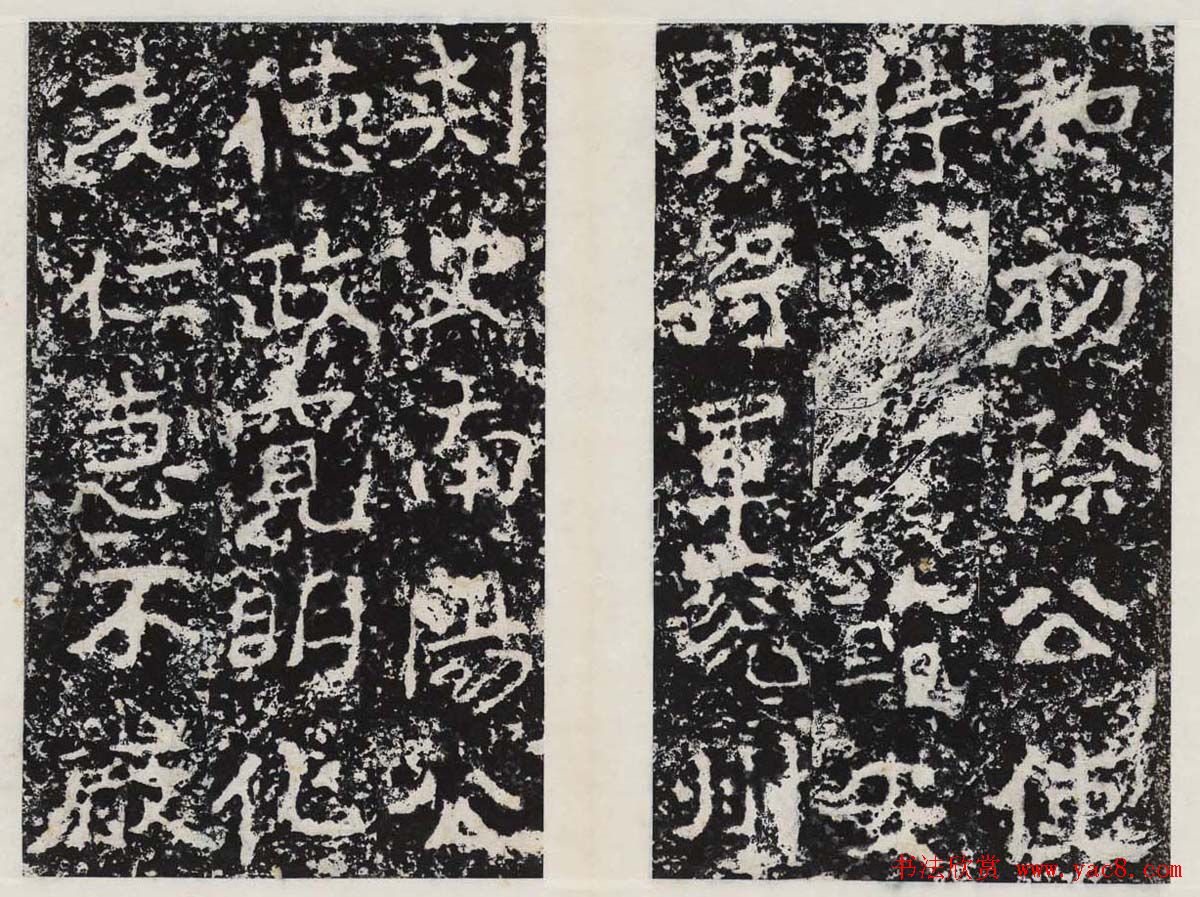 和初除公使
持節安
東將軍兗州
刺史南陽公
德政寬明化
先仁惠不嚴
书法欣赏 www.yac8.com